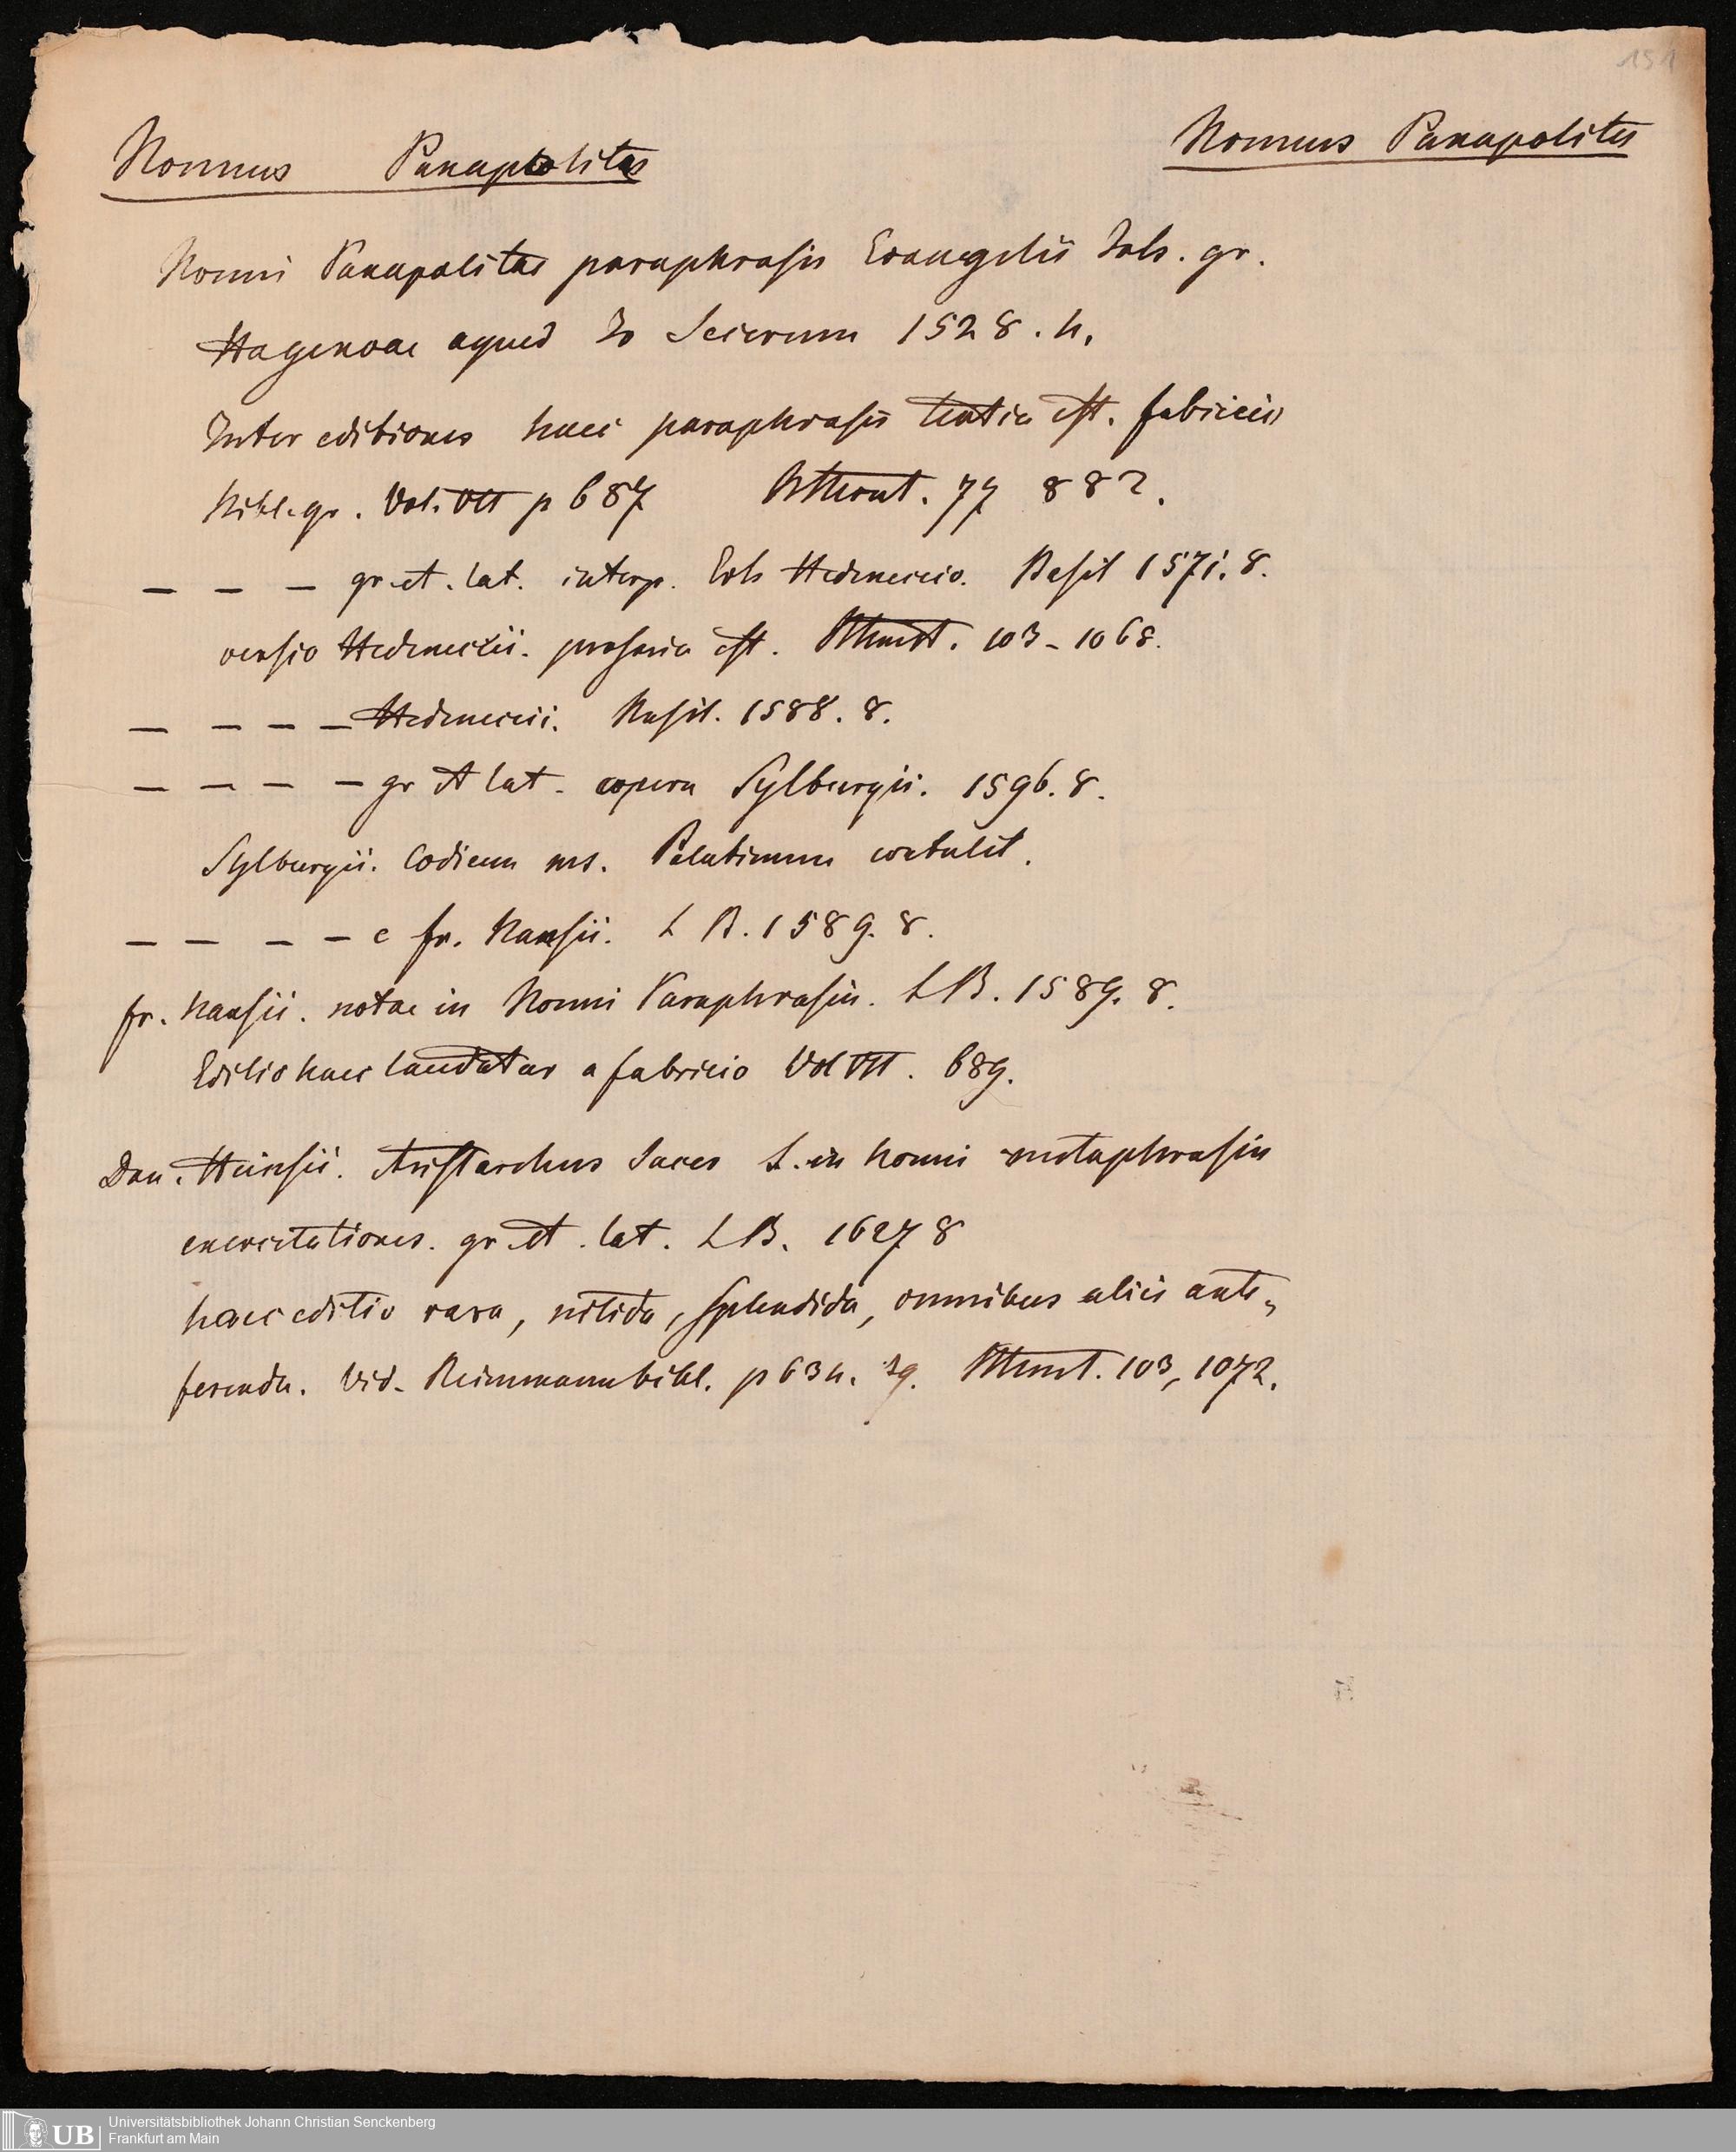 151
Nonnus Panapolites
Nonnus Panapolitas
Nonni Panapolitae paraphrasis Evangelii Joh. gr.
Hagenoae apud Jo Secerum 1528. 4.
Inter editiones haec paraphrasis tertia est. fabricii
bibl. gr. Vol. VII p 687 77 882.
— — — gr. et. lat. interp. Hedeneccio. Basil 1571. 8.
versio Hedeneccii. prosaria est. 103 - 1068.
— — — — Hedeneccii. Basil. 1588. 8.
— — — — gr et lat. opera Sylburgii. 1596. 8.
Sylburgii. Codicem ms. Palatinum contulit.
— — — — c fr. Nansii. L B. 1589. 8.
fr. Nansii. notae in Nonni Paraphrasin. L B. 1589. 8.
Editio haec laudatur a fabricio Vol VII. 689.
Dan. Heinsii. Aristarchus Sacer s. in Nonni metaphrasin
exercitationes. gr. et. lat. L B. 1627 8
haec editio rara, nitida, splendida, omnibus aliis ante-
ferenda. Vid. Reimmann bibl. p 634. sq. 103, 1072.
UB
Universitätsbibliothek Johann Christian Senckenberg
Frankfurt am Main